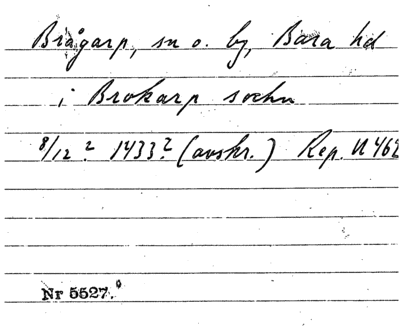 Brågarp, sn o. by, Bara hd
i Brokarp sochn
8/12 ? 1433? (avskr.) Rep. N 462
Nr 5527.